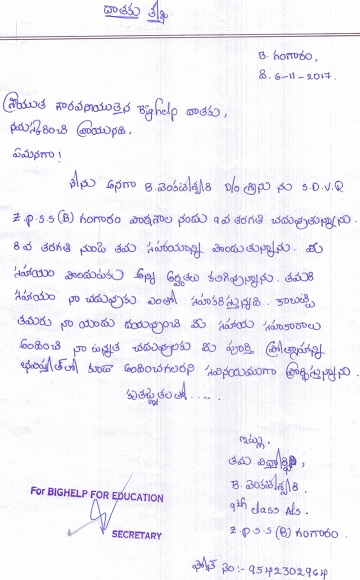 దాతకు లేఖ
B. గంగారం,
ది. 6-11-2017.
శ్రీయుత గౌరవనీయులైన BigHelp దాతకు,
నమస్కరించి వ్రాయునది,
ఏమనగా!
నేను అనగా B. వెంకటేశ్వరి D/o శ్రీను ను S.D.V.Q
Z.P.S.S (B) గంగారం పాఠశాల నందు 9వ తరగతి చదువుతున్నాను.
8 వ తరగతి నుండి తమ సహాయాన్ని పొందుతున్నాను. మీ
సహాయం పొందుటకు అన్ని అర్హతలు కలిగివున్నాను. తమరి
సహాయం నా చదువుకు ఎంతో సహకరిస్తున్నది. కాబట్టి
తమరు నా యందు దయవుంచి మీ సహాయ సహకారాలు
అందించి నా ఉన్నత చదువులకు మీ పూర్తి ప్రోత్సాహాన్ని
భవిష్యత్‌లో కూడా అందించగలరని సవినయముగా ప్రార్థిస్తున్నాను.
కృతజ్ఞతలతో....
ఇట్లు,
తమ విద్యార్థిని,
B. వెంకటేశ్వరి.
9th class A/s.
Z.P.S.S (B) గంగారం.
ఫోన్ నెం:- 9542302964
For BIGHELP FOR EDUCATION
SECRETARY